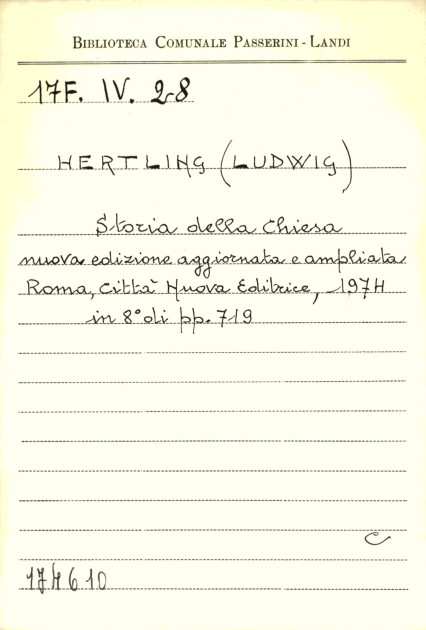 BIBLIOTECA COMUNALE PASSERINI - LANDI
17F. IV. 28
HERTLING (LUDWIG)
Storia della Chiesa
nuova edizione aggiornata e ampliata
Roma, Città Nuova Editrice, 1974
in 8° di pp. 719
C
174610